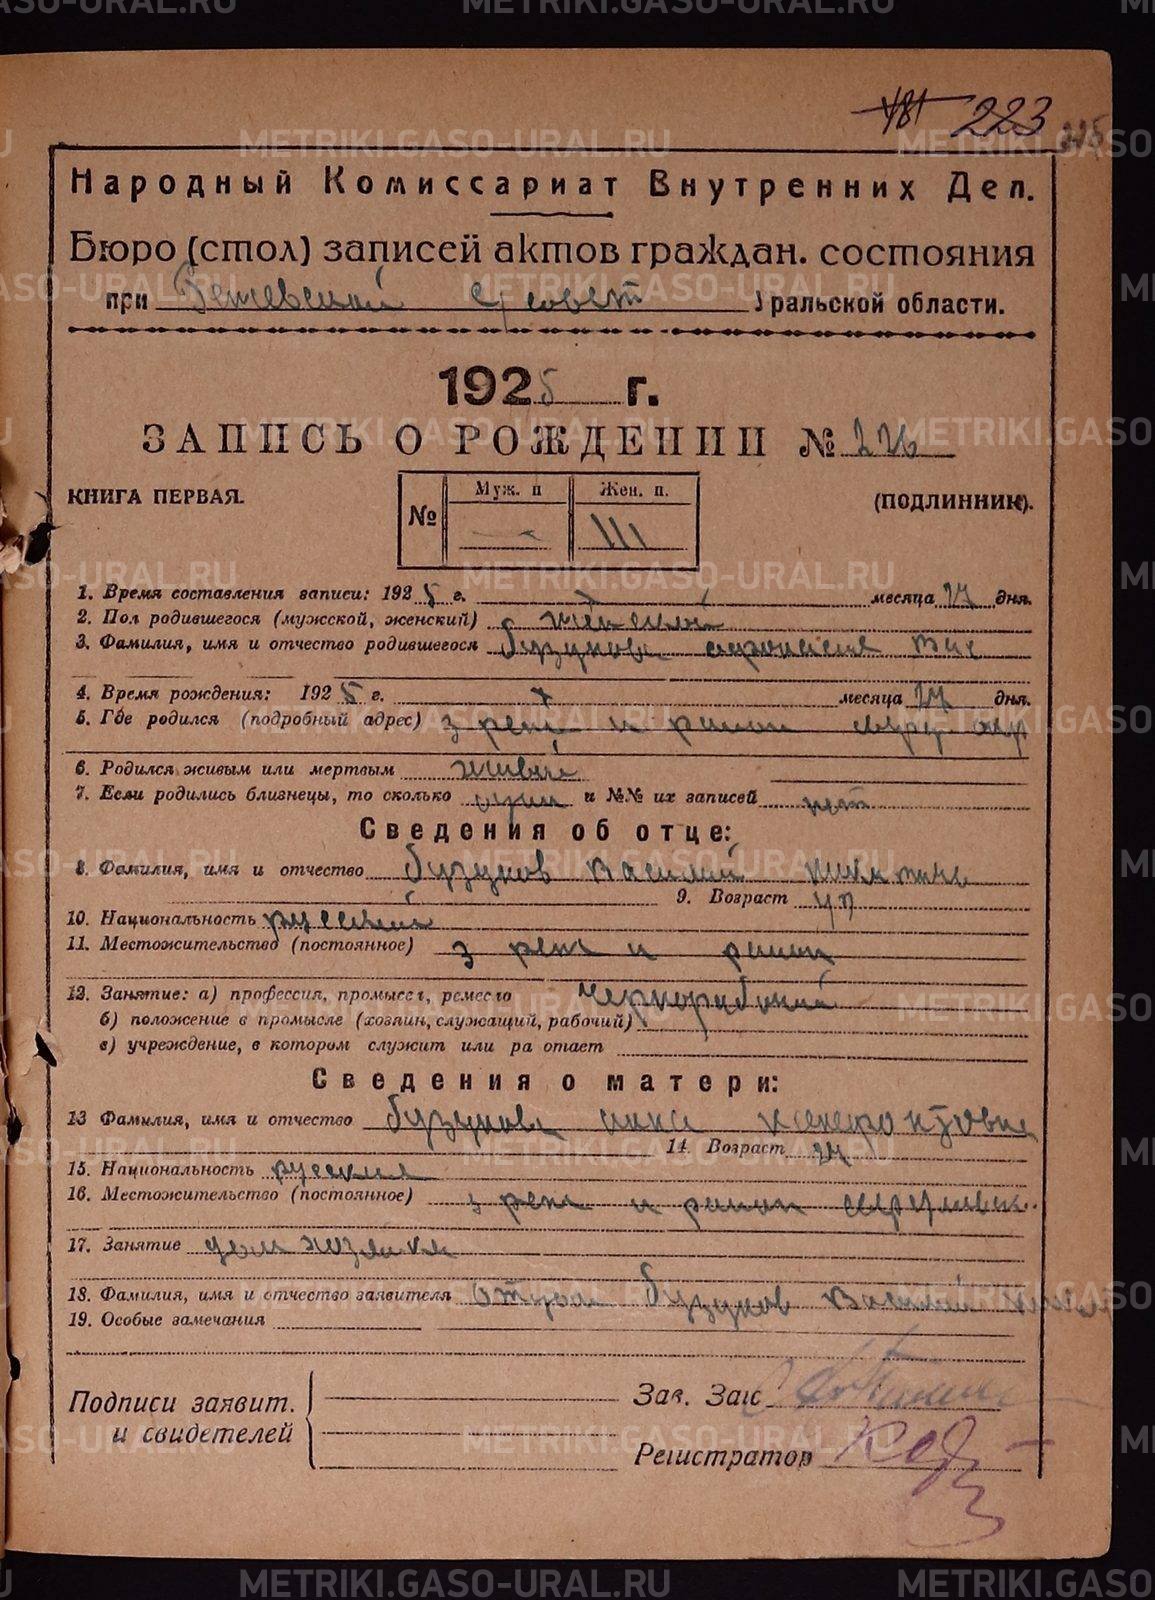 METRIKI.GASO-URAL.RU
181 223 225
Народный Комиссариат Внутренних Дел.
Бюро (стол) записей актов граждан. состояния
при Режевской с/совет Уральской области.
1925 г.
ЗАПИСЬ О РОЖДЕНИИ № 226
КНИГА ПЕРВАЯ. (ПОДЛИННИК).
№ Муж. п Жен. п.
— 111
1. Время составления записи: 1925 г. месяца дня.
2. Пол родившегося (мужской, женский) женский
3. Фамилия, имя и отчество родившегося Бузунова Афанасия Вас
4. Время рождения: 1925 г. 7 месяца дня.
5. Где родился (подробный адрес) з реж и район сверд окр
6. Родился живым или мертвым живый
7. Если родились близнецы, то сколько один и №№ их записей нет
Сведения об отце:
8. Фамилия, имя и отчество Бузунов Василий
9. Возраст
10. Национальность русский
11. Местожительство (постоянное) з реж и район
12. Занятие: а) профессия, промысел, ремесло Чернорабочий
б) положение в промысле (хозяин, служащий, рабочий)
в) учреждение, в котором служит или ра отает
Сведения о матери:
13 Фамилия, имя и отчество Бузунова анна
14. Возраст
15. Национальность русския
16. Местожительство (постоянное) з реж и район
17. Занятие дом хозяйка
18. Фамилия, имя и отчество заявителя Бузунов Василий
19. Особые замечания
Подписи заявит.
и свидетелей
Зав. Загс
Регистратор